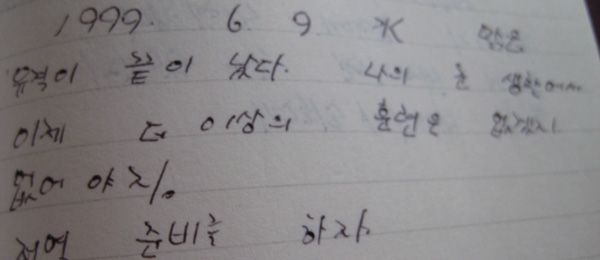 1999. 6 9 水 맑음
유격이 끝이 났다. 나의 군 생활에서
이제 더 이상의 훈련은 없겠지
없어야지.
저녁 준비를 하자.